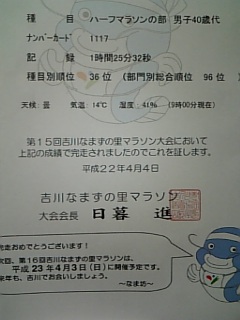 種　目　ハーフマラソンの部　男子40歳代
ナンバーカード　1117
記　録　1時間25分32秒
種目別順位　36位　(部門別総合順位　96位　)
天候：曇　気温：14℃　湿度：41%　(9時00分現在)
第15回吉川なまずの里マラソン大会において
上記の成績で完走されましたのでこれを証します。
平成22年4月4日
吉川なまずの里マラソン
大会会長　日暮　進
完走おめでとうございます！
次回、第16回吉川なまずの里マラソンは、
平成23年4月3日(日)に開催予定です。
来年も、吉川でお会いしましょう。
～なま坊～